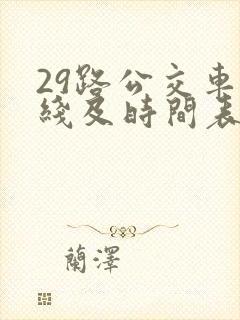 29路公交車
綫及時間表
蘭澤